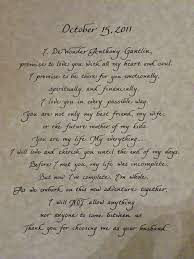 October 15, 2011
I, DeWonder Anthony Gantlin,
promise to love you with all my heart and soul.
I promise to be there for you emotionally,
spiritually, and financially.
I love you in every possible way.
You are not only my best friend, my wife,
or the future mother of my kids
You are my life. My everything...
I will love and cherish you until the end of my days.
Before I met you, my life was incomplete.
But now I'm complete. I'm whole.
As we embark on this new adventure together,
I will NOT allow anything
nor anyone to come between us.
Thank you for choosing me as your husband.